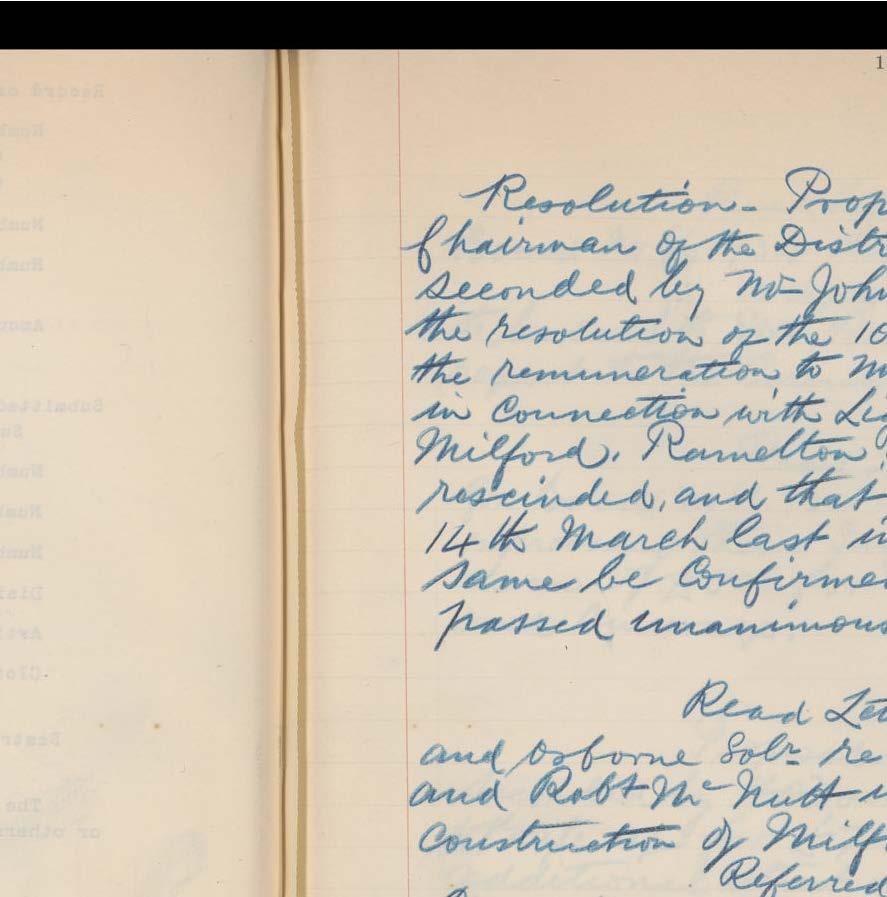 1
Resolution - Prop
Chairman of the Distr
seconded by Mr John
the resolution of the 10
the remuneration to
in connection with Lig
Milford, Ramelton
rescinded, and that
14th March last in
same be Confirme
passed unanimous
Read Let
and Osborne Solrs re
and Robt McNutt
construction of Milf
Referred